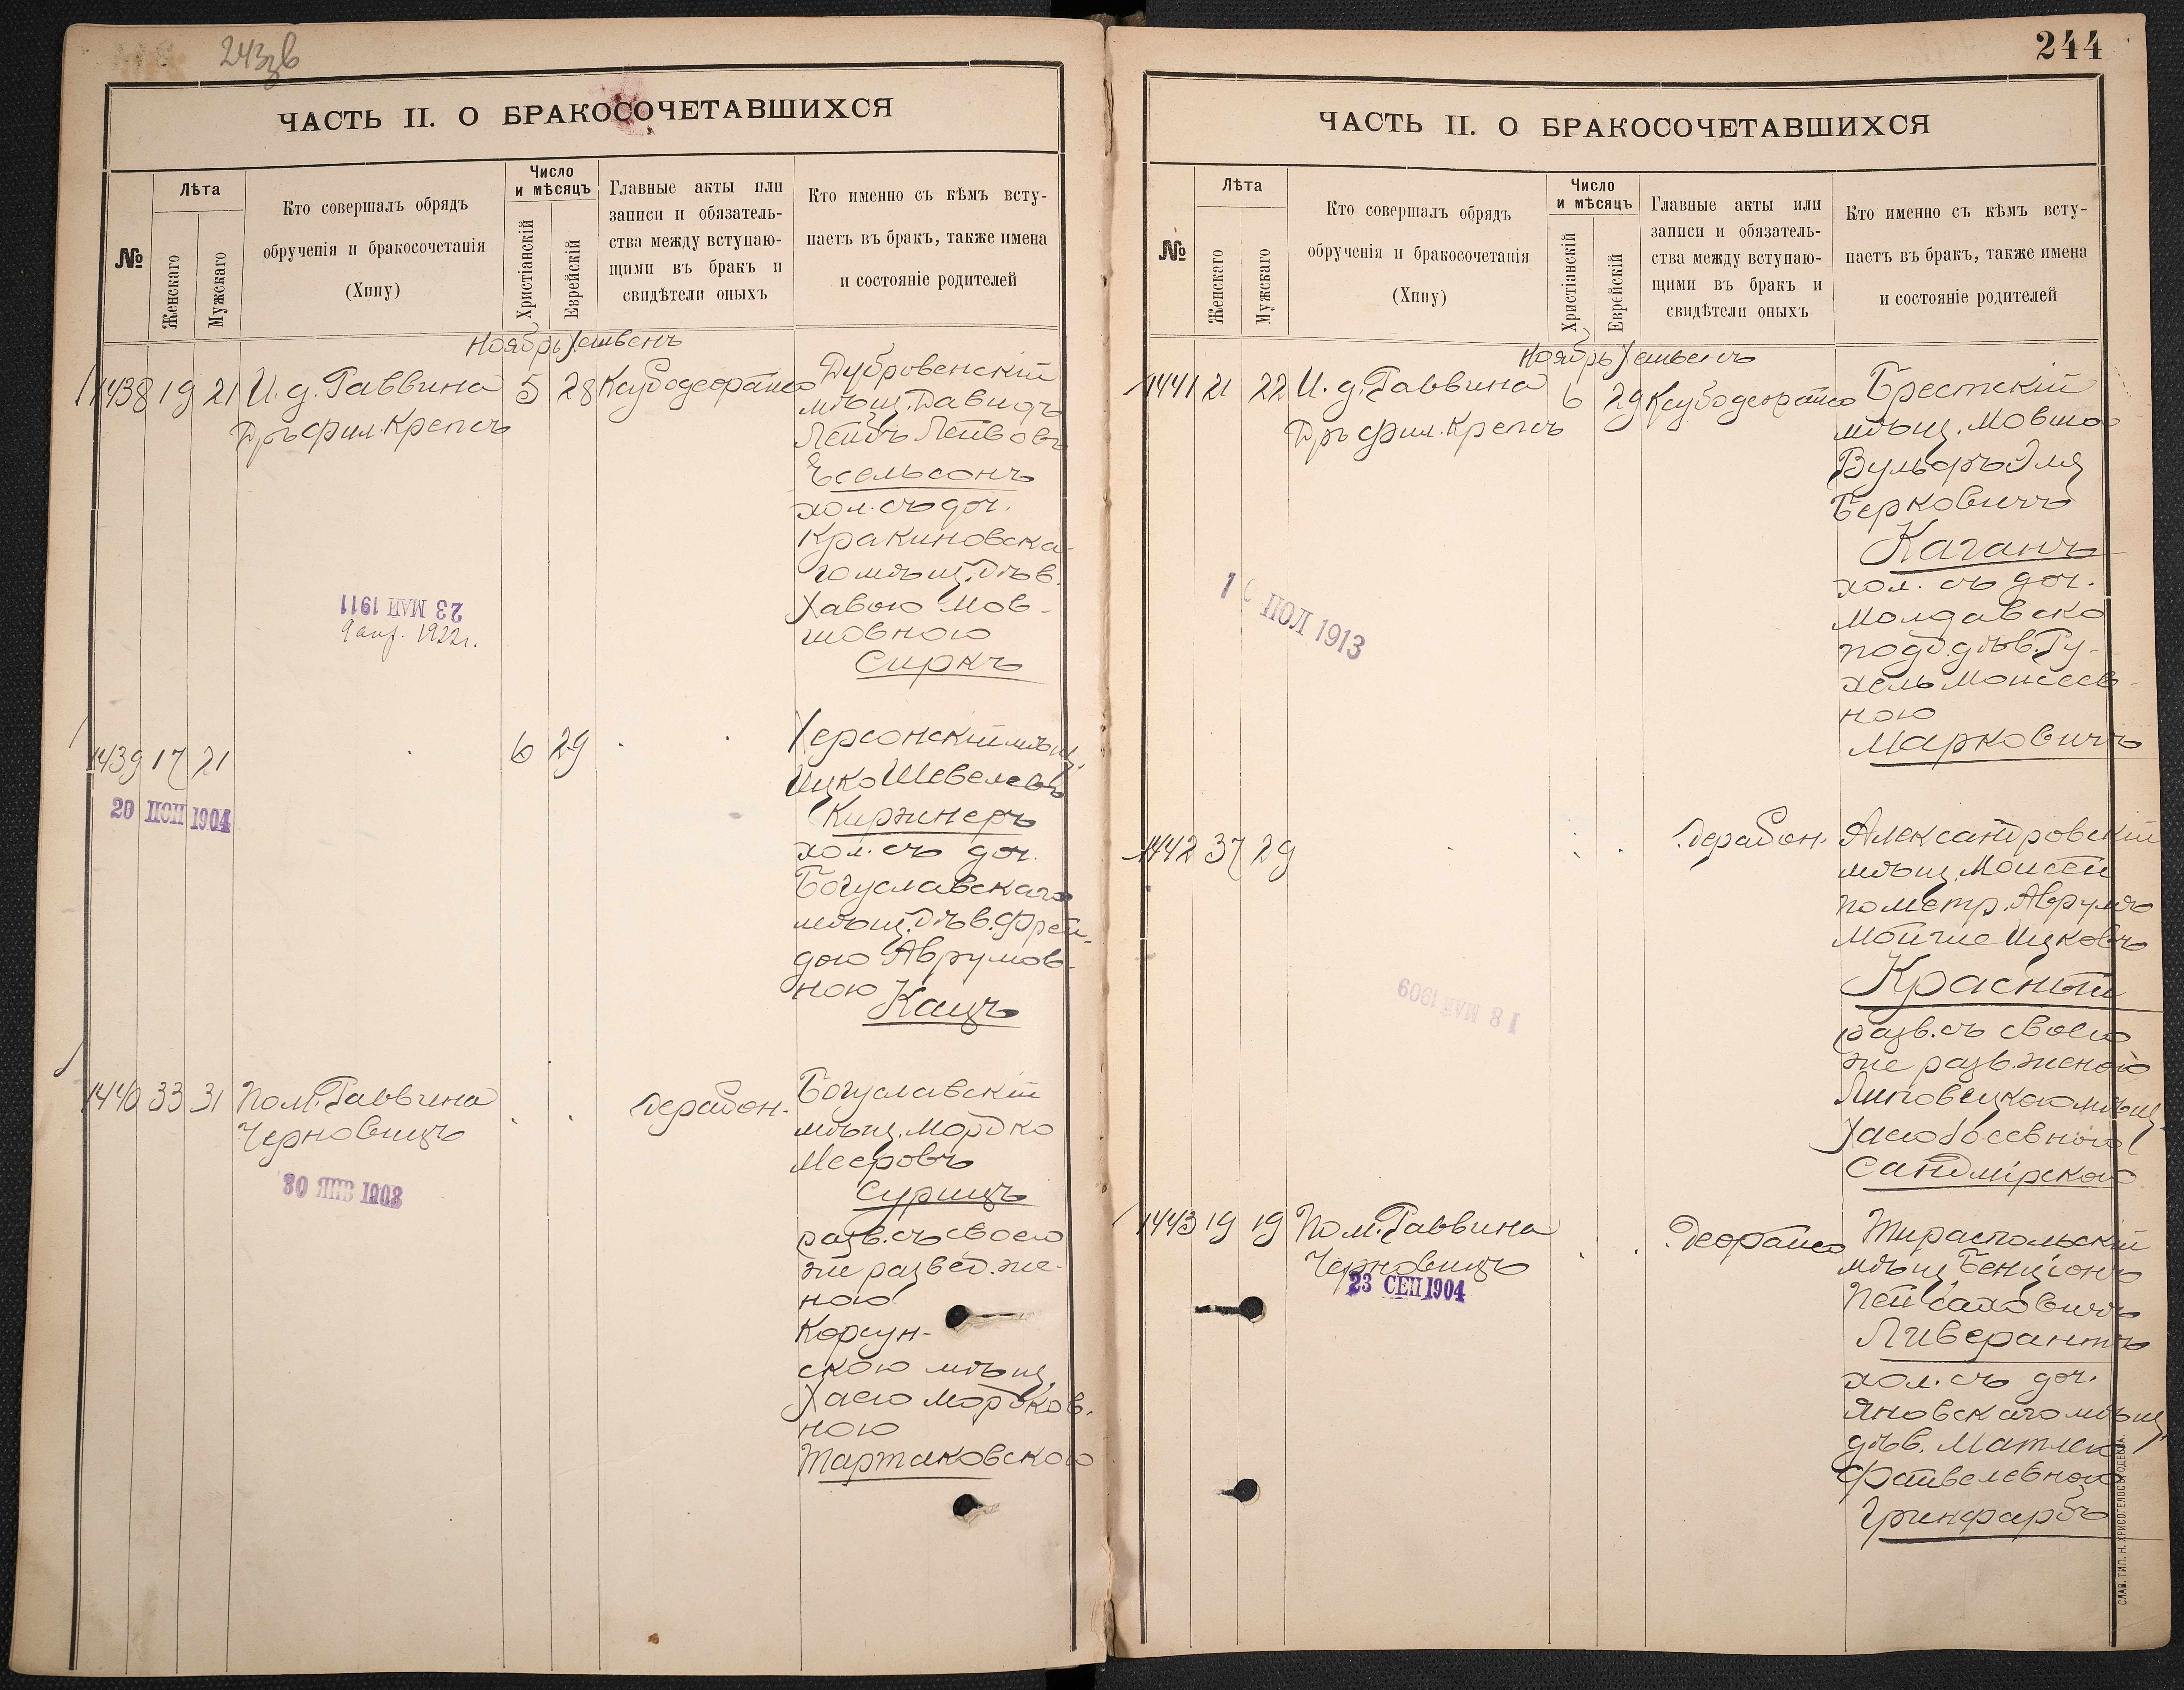 243зв
ЧАСТЬ II. О БРАКОСОЧЕТАВШИХСЯ
№
Лѣта
Женскаго
Мужскаго
Кто совершалъ обрядъ
обрученія и бракосочетанія
(Хипу)
Число
и мѣсяцъ
Христіанскій
Еврейскій
Главные акты или
записи и обязатель-
ства между вступаю-
щими въ бракъ и
свидѣтели оныхъ
Кто именно съ кѣмъ всту-
паетъ въ бракъ, также имена
и состояніе родителей
Ноябрь Хешвенъ
1438 19 21 И. д. Раввина 5 28
Дръ фил. Крепсъ
Дубровенскій
мѣщ. Давидъ
Лейбъ Лейбовъ
Есельсонъ
хол. съ доч.
Кракиновска-
го мѣщ. дѣв.
Хавою Мов-
шовною
Сиркъ
23 МАЙ 1911
9 апр. 1922 г.
1439 17 21 6 29
20 ІЮН 1904
Херсонскій мѣщ.
Ицко Шевелевъ
Киржнеръ
хол. съ доч.
Богуславскаго
мѣщ. дѣв. Фрей-
дою Аврумов-
ною Кацъ
1440 33 31 Пом. Раввина
Черновицъ
30 ЯНВ 1903
Богуславскій
мѣщ. Мордко
Мееровъ
Сурицъ
разв. съ своею
же развед. же-
ною
Корсун-
скою мѣщ.
Хаею Мордков-
ною
Тартаковскою
244
ЧАСТЬ II. О БРАКОСОЧЕТАВШИХСЯ
№
Лѣта
Женскаго
Мужскаго
Кто совершалъ обрядъ
обрученія и бракосочетанія
(Хипу)
Число
и мѣсяцъ
Христіанскій
Еврейскій
Главные акты или
записи и обязатель-
ства между вступаю-
щими въ бракъ и
свидѣтели оныхъ
Кто именно съ кѣмъ всту-
паетъ въ бракъ, также имена
и состояніе родителей
Ноябрь Хешвенъ
1441 21 22 И. д. Раввина 6 29
Дръ фил. Крепсъ
Брестскій
мѣщ. Мовша
Вульфъ Эля
Берковичъ
Каганъ
хол. съ доч.
Молдавско
подд. дѣв. Ру-
хель Моисеев-
ною
Марковичъ
ІЮЛ 1913
1442 37 29
18 МАЙ 1909
Александровскій
мѣщ. Моисей
по метр. Аврумъ
Мойше Ицковъ
Красный
разв. съ своею
же разв. женою
Липовецкою мѣщ.
Хаею
Сандмірскою
1443 19 19 Пом. Раввина
Черновицъ
23 СЕН 1904
Тираспольскій
мѣщ. Бенціонъ
Пейсаховичъ
Ливерантъ
хол. съ доч.
Яновскаго мѣщ.
дѣв. Матлею
Файвелевною
Гринфарбъ
СЛАВ. ТИП. Н. ХРИСОГЕЛОСЪ, ОДЕССА.